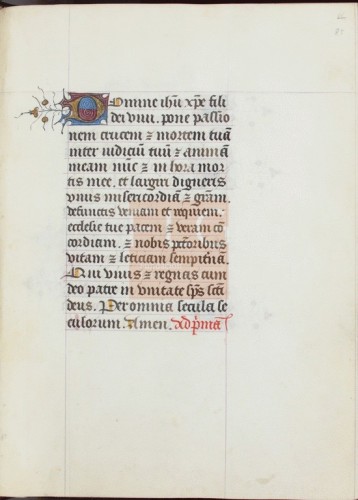 Domine ihu xpe fili
dei viui. pone passio
nem crucem ⁊ mortem tuā
inter iudiciū tuū ⁊ animā
meam nūc ⁊ in hora mor
tis mee. et largiri digneris
viuis misericordiā ⁊ grām.
defunctis veniam et requiem.
ecclesie tue pacem ⁊ veram cō
cordiam. ⁊ nobis pctōribus
vitam ⁊ leticiam sempitnā.
Qui viuis ⁊ regnas cum
deo patre in vnitate sps scti
deus. Per omnia secula se
culorum. Amen. Ad pmā